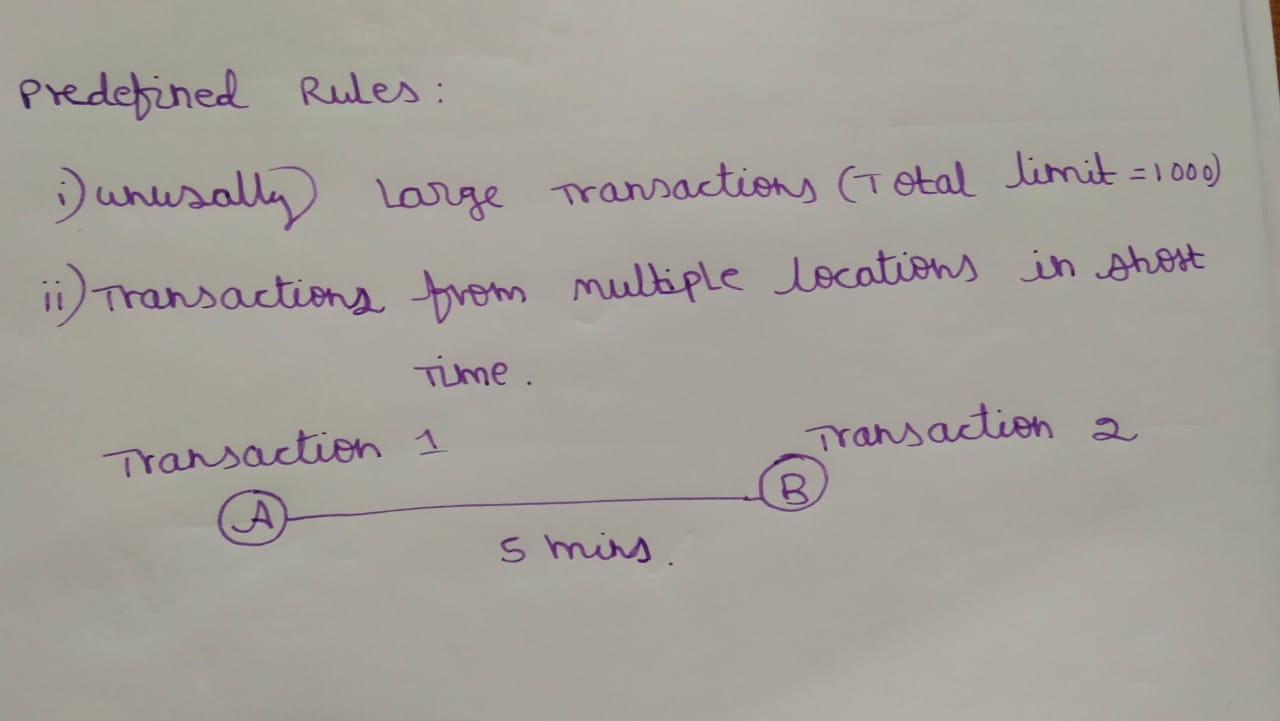 Predefined Rules:
i) unusally Large Transactions (Total limit = 1000)
ii) Transactions from multiple locations in short
Time.
Transaction 1
Transaction 2
A
B
5 mins.